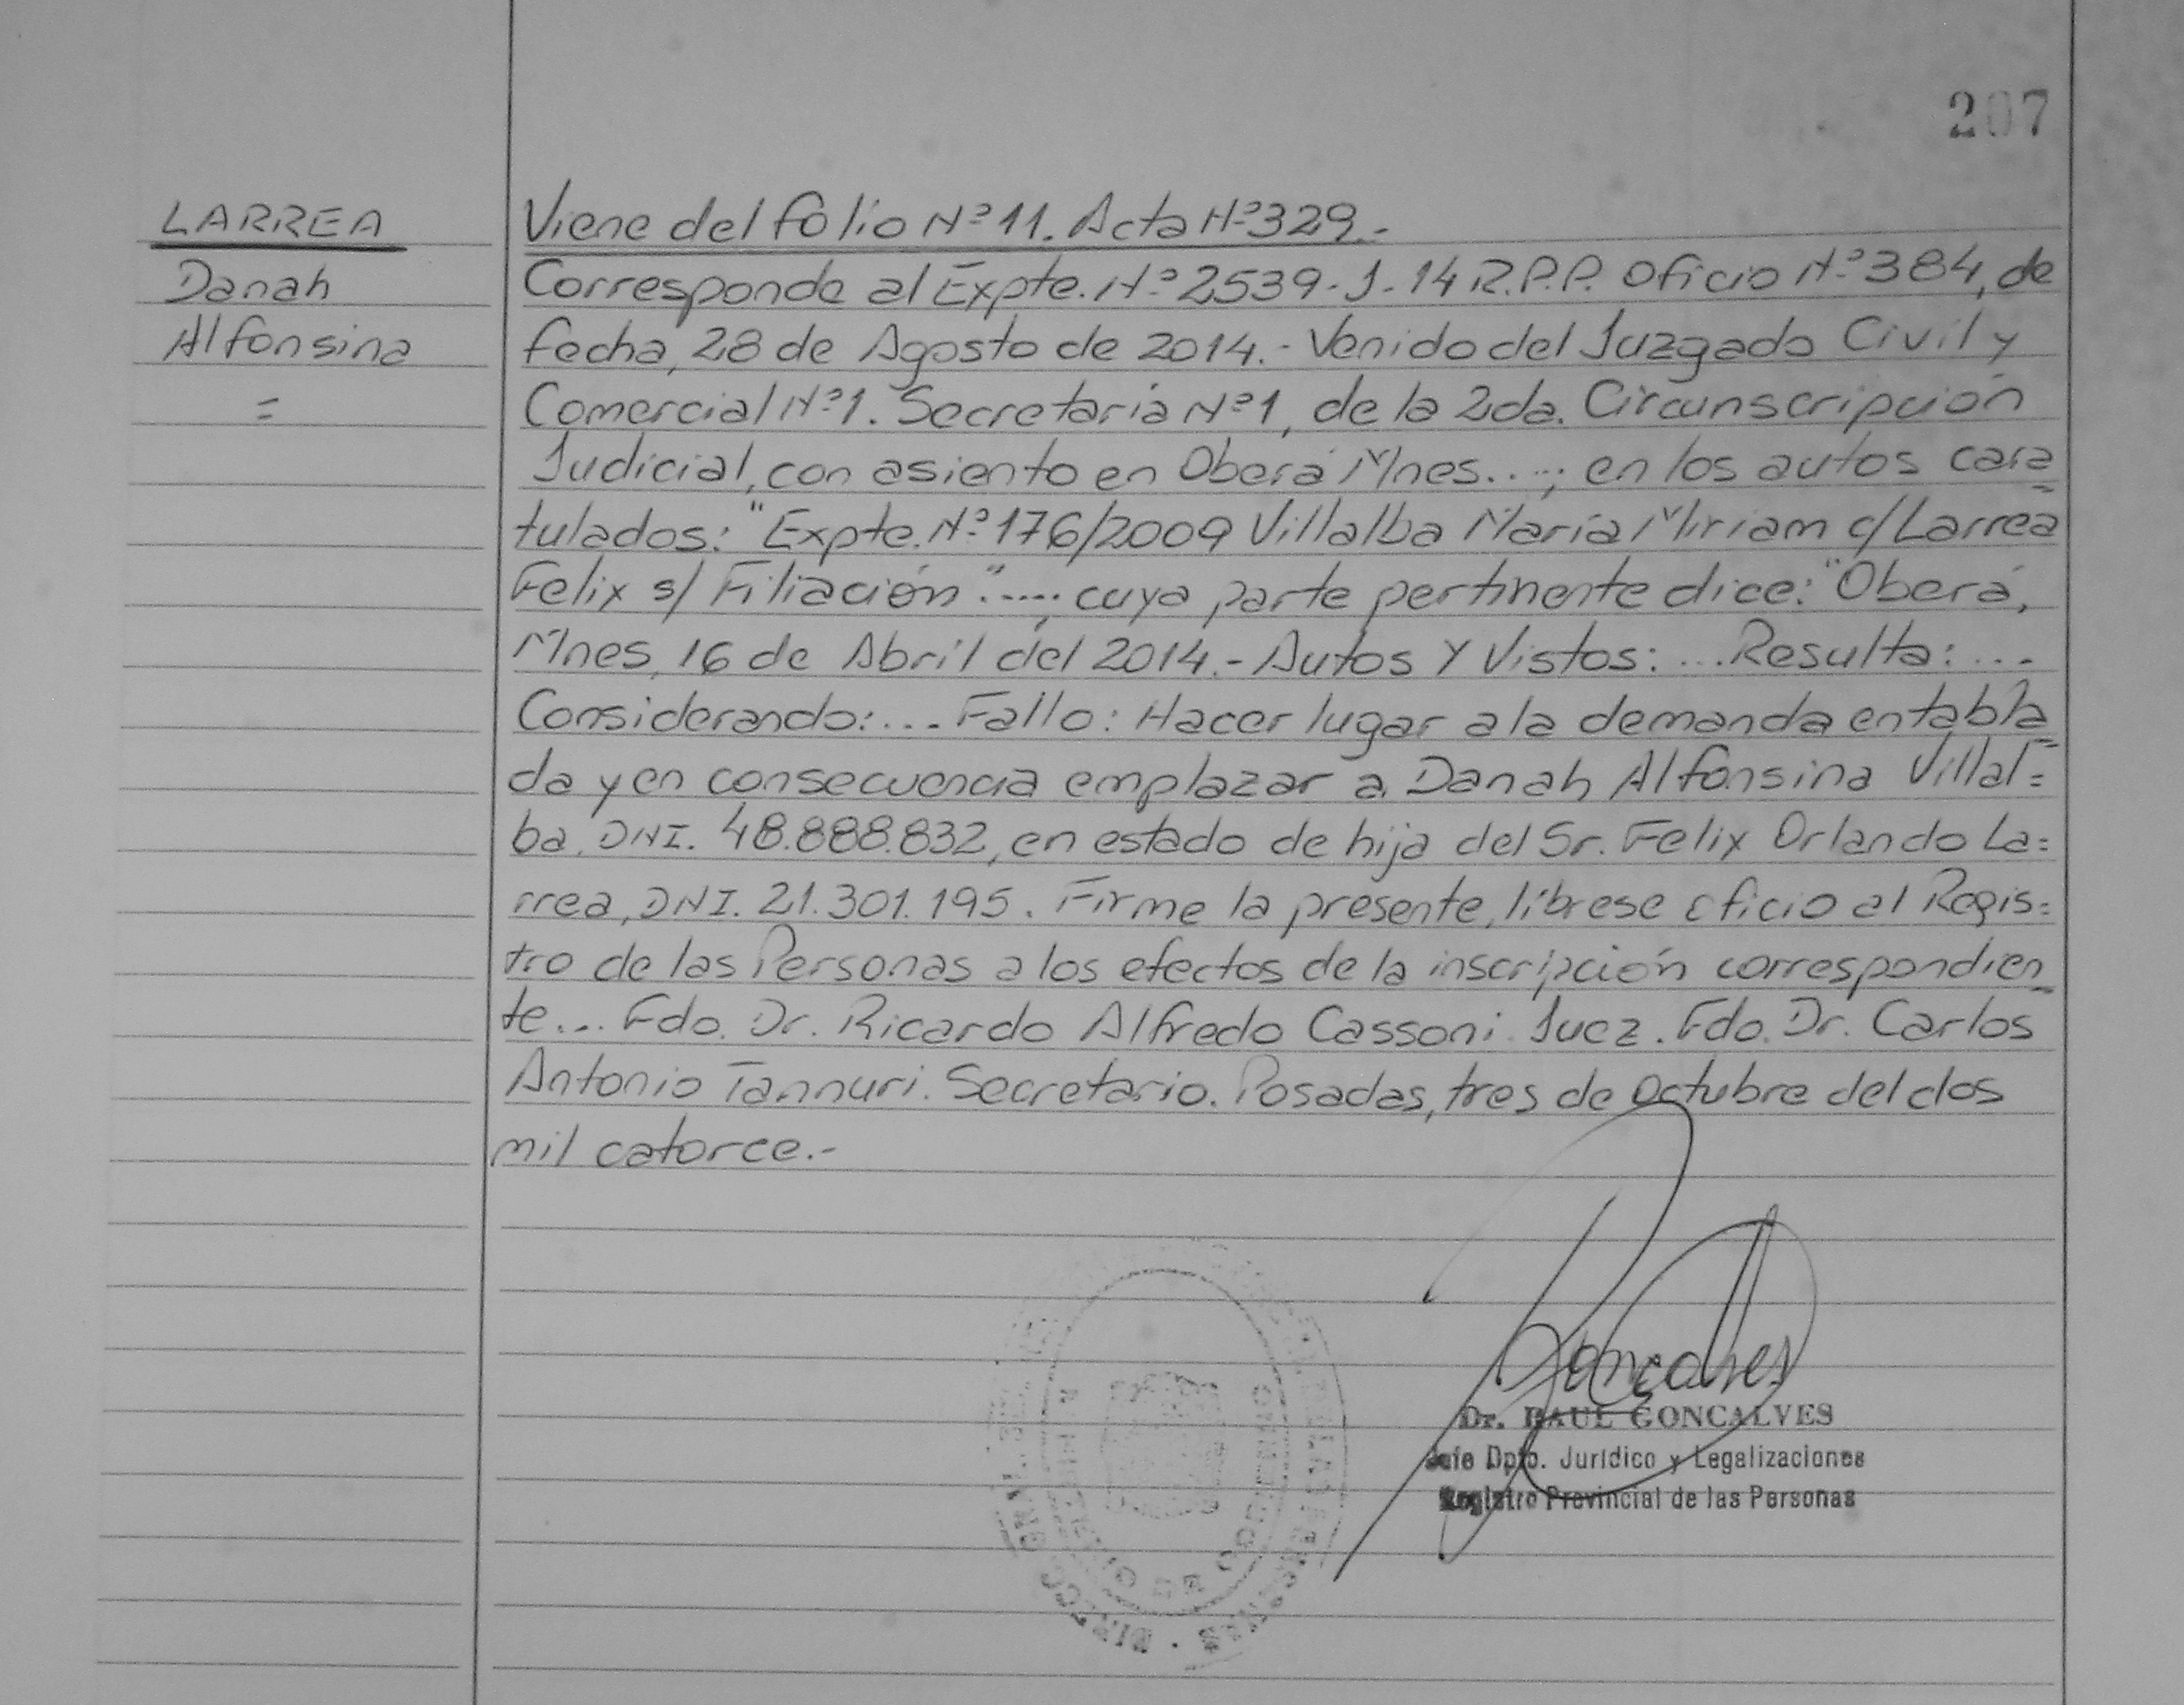 207
LARREA
Danah
Alfonsina
=
Viene del folio Nº 11. Acta Nº 329.-
Corresponde al Expte. Nº 2539-J-14 R.P.P. Oficio Nº 384, de
fecha, 28 de Agosto de 2014.- Venido del Juzgado Civil y
Comercial Nº 1. Secretaría Nº 1, de la 2da. Circunscripción
Judicial, con asiento en Oberá Mnes....; en los autos cara=
tulados: "Expte. Nº 176/2009 Villalba María Miriam c/ Larrea
Felix s/ Filiación".....; cuya parte pertinente dice: "Oberá,
Mnes, 16 de Abril del 2014.- Autos Y Vistos: ...Resulta: ...
Considerando:... Fallo: Hacer lugar a la demanda entabla=
da y en consecuencia emplazar a Danah Alfonsina Villal=
ba, DNI. 48.888.832, en estado de hija del Sr. Felix Orlando La=
rrea, DNI. 21.301.195. Firme la presente, líbrese oficio al Regis=
tro de las Personas a los efectos de la inscripción correspondien=
te... Fdo. Dr. Ricardo Alfredo Cassoni. Juez. Fdo. Dr. Carlos
Antonio Tannuri. Secretario. Posadas, tres de Octubre del dos
mil catorce.-
Goncalves
Dr. RAUL GONCALVES
Jefe Dpto. Jurídico y Legalizaciones
Registro Provincial de las Personas